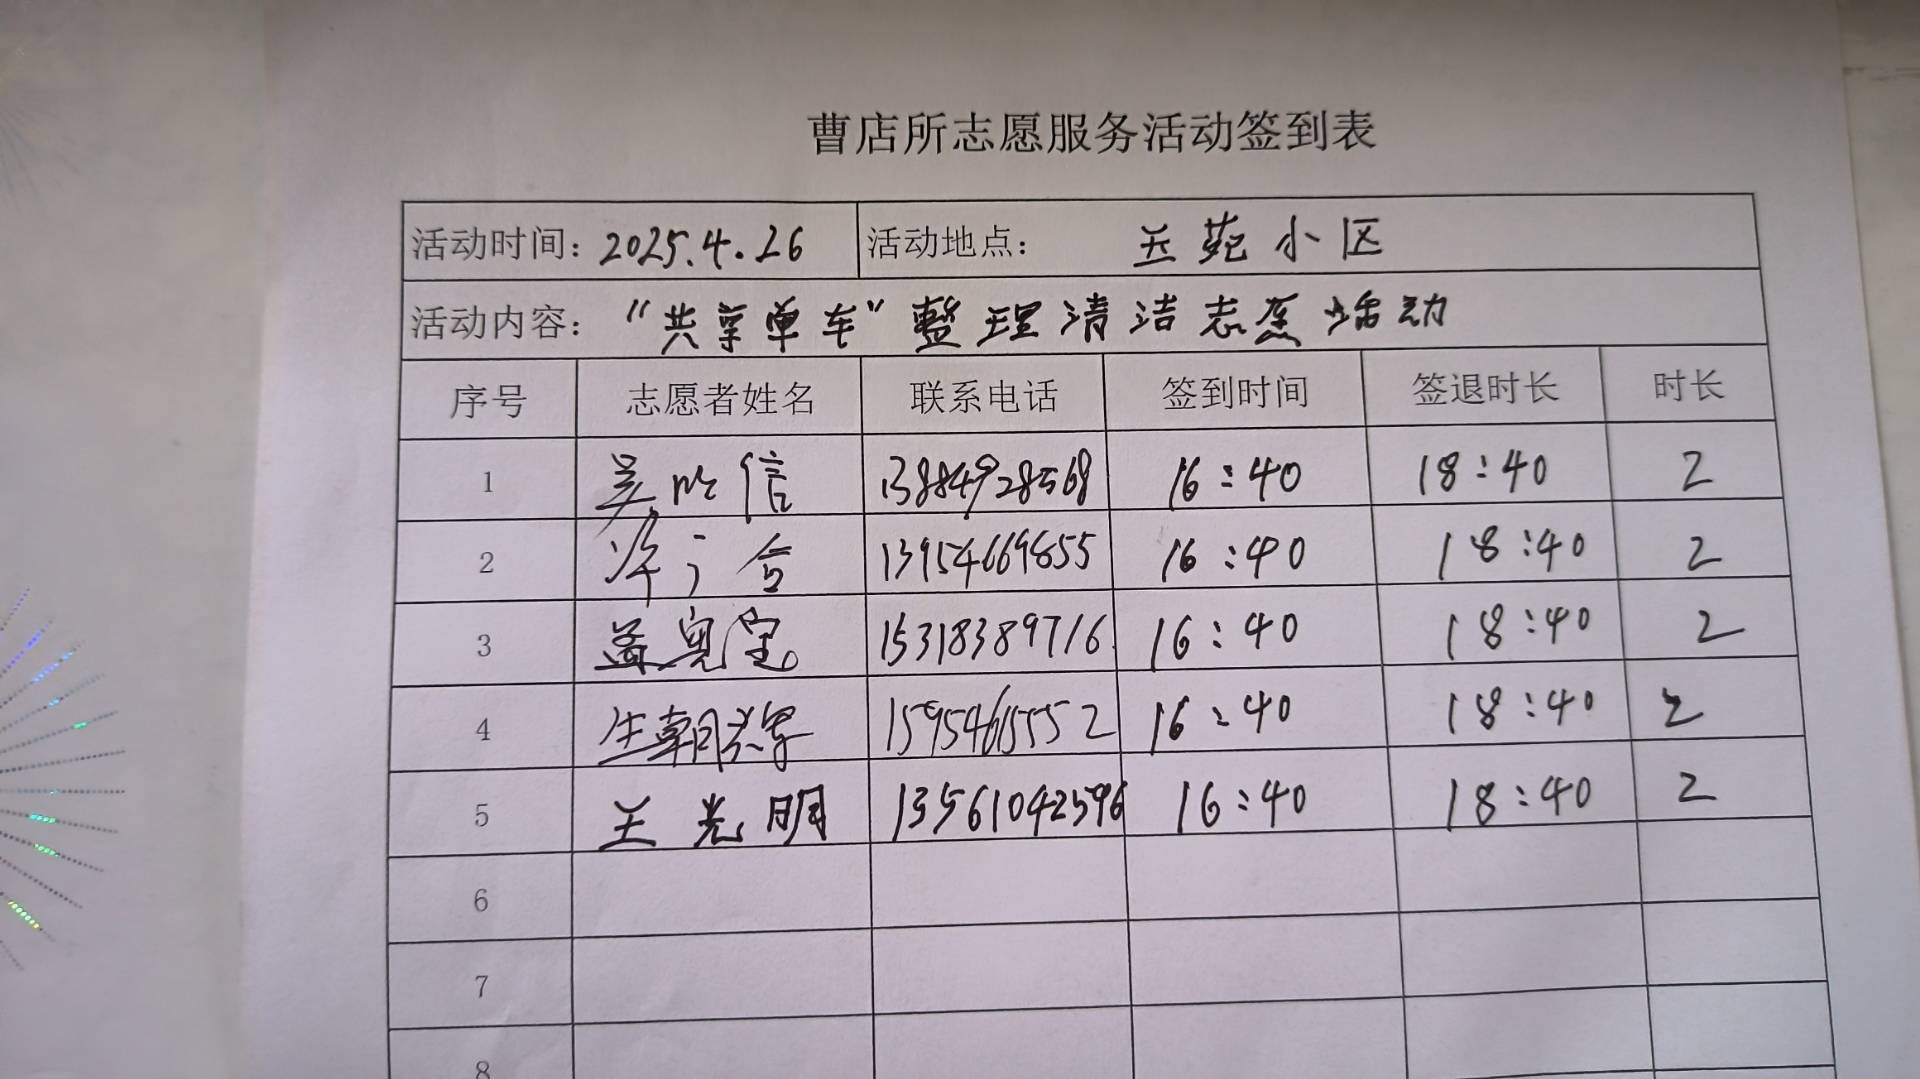 曹店所志愿服务活动签到表
活动时间：2025.4.26 活动地点： 玉苑小区
活动内容：“共享单车”整理清洁志愿活动
序号 志愿者姓名 联系电话 签到时间 签退时长 时长
1 吴 信 13884928568 16:40 18:40 2
2 13954669855 16:40 18:40 2
3 孟奥宝 15318389716 16:40 18:40 2
4 生朝 15954615552 16:40 18:40 2
5 王光明 13561042596 16:40 18:40 2
6
7
8